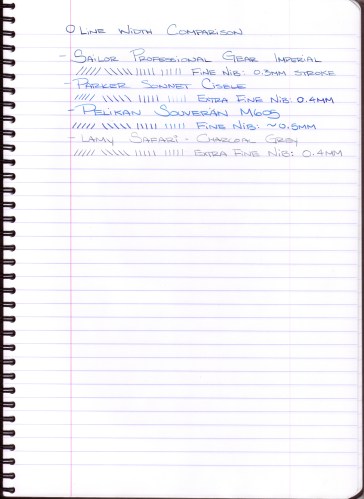 O Line Width Comparison
- Sailor Professional Gear Imperial
///// \\\\\ ||||| ||||| Fine Nib: 0.3mm Stroke
- Parker Sonnet Cisele
//// \\\\\ ||||| ||||| Extra Fine Nib: 0.4mm
- Pelikan Souveran M605
///// \\\\\ ||||| ||||| Fine Nib: ~0.5mm
- Lamy Safari - Charcoal Grey
///// \\\\\ ||||| ||||| Extra Fine Nib: 0.4mm